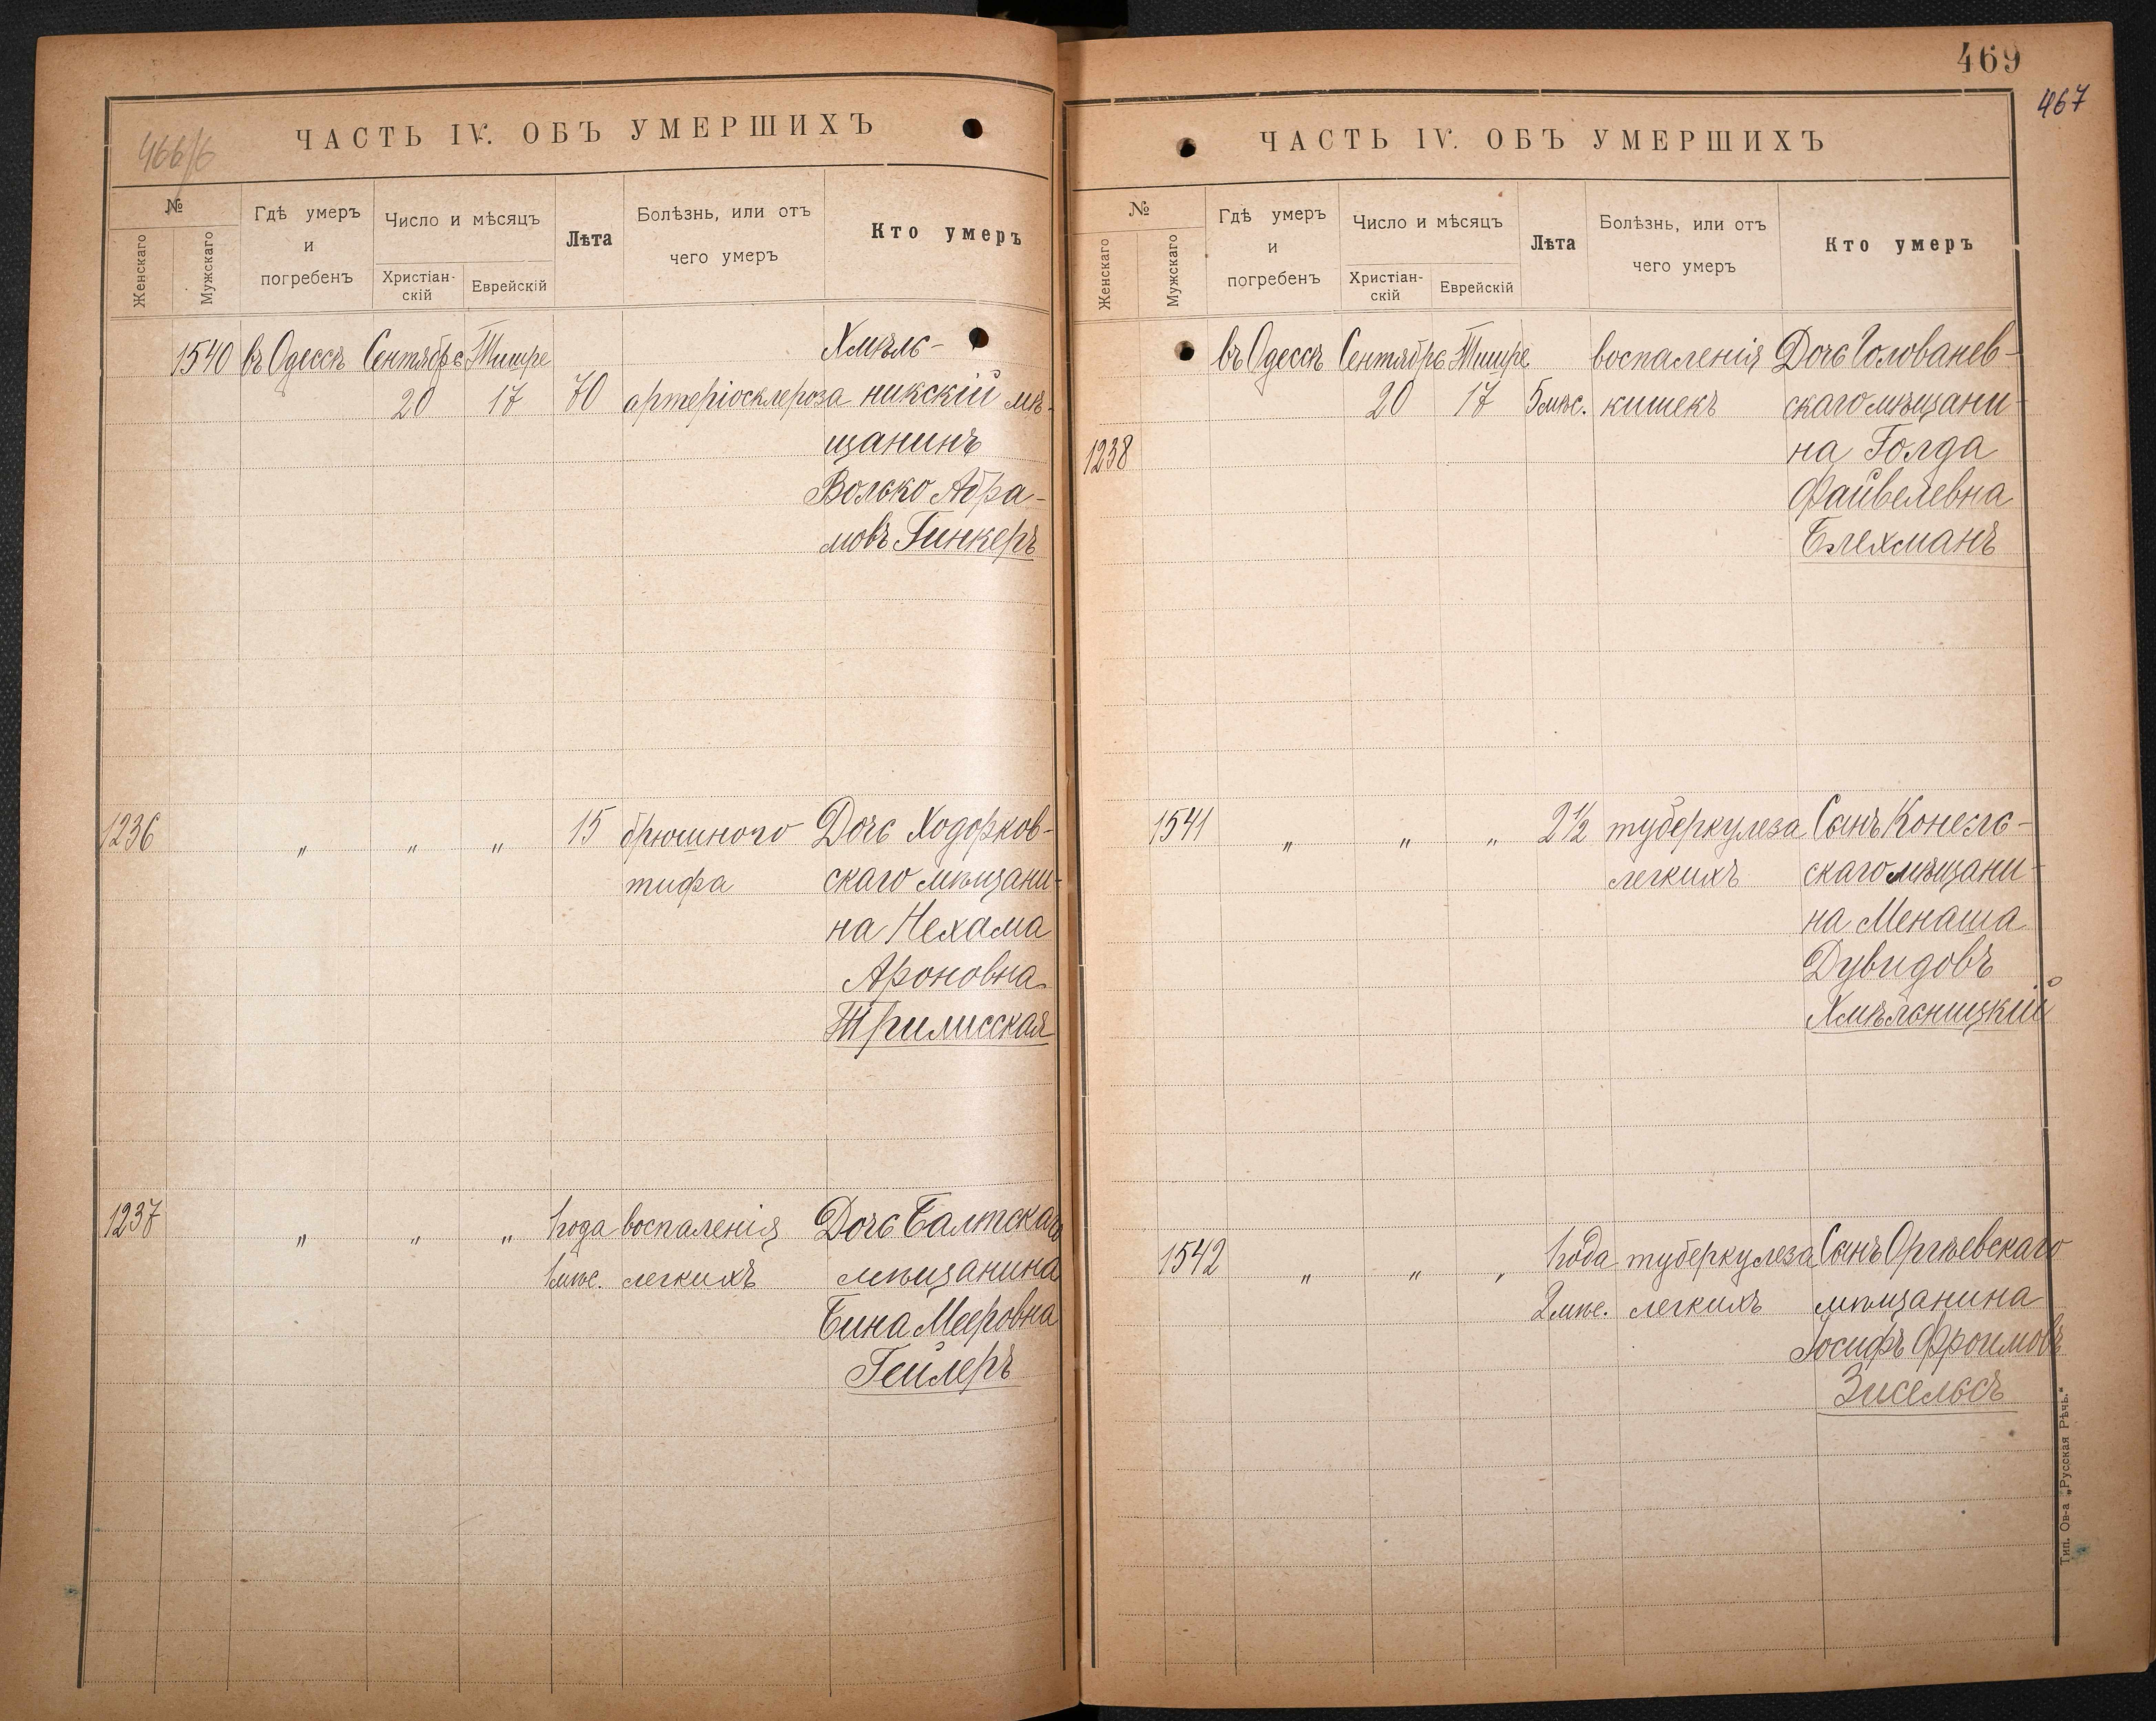 466/6
ЧАСТЬ IV. ОБЪ УМЕРШИХЪ
№
Женскаго
Мужскаго
Гдѣ умеръ
и
погребенъ
Число и мѣсяцъ
Христіан-
скій
Еврейскій
Лѣта
Болѣзнь, или отъ
чего умеръ
Кто умеръ
1540 въ Одессѣ Сентябрь Тишре Хмѣль-
20 17 70 артеріосклероза никскій мѣ-
щанинъ
Волько Абра-
мовъ Гинкеръ
1236 „ „ „ 15 брюшного Дочь Ходорков-
тифа скаго мѣщани-
на Нехама
Ароновна
Трилисская
1237 „ „ „ 1 года воспаленія Дочь Балтскаго
1 мѣс. легкихъ мѣщанина
Бина Мееровна
Гейлеръ
469
467
ЧАСТЬ IV. ОБЪ УМЕРШИХЪ
№
Женскаго
Мужскаго
Гдѣ умеръ
и
погребенъ
Число и мѣсяцъ
Христіан-
скій
Еврейскій
Лѣта
Болѣзнь, или отъ
чего умеръ
Кто умеръ
въ Одессѣ Сентябрь Тишре воспаленія Дочь Голованев-
20 17 5 мѣс. кишекъ скаго мѣщани-
1238 на Голда
Файвелевна
Блехманъ
1541 „ „ „ 2½ туберкулеза Сынъ Конель-
легкихъ скаго мѣщани-
на Менаша
Дувидовъ
Хмѣльницкій
1542 „ „ „ 1 года туберкулеза Сынъ Оргѣевскаго
2 мѣс. легкихъ мѣщанина
Іосифъ Фроимовъ
Зисельсъ
Тип. Ов-а „Русская Рѣчь."